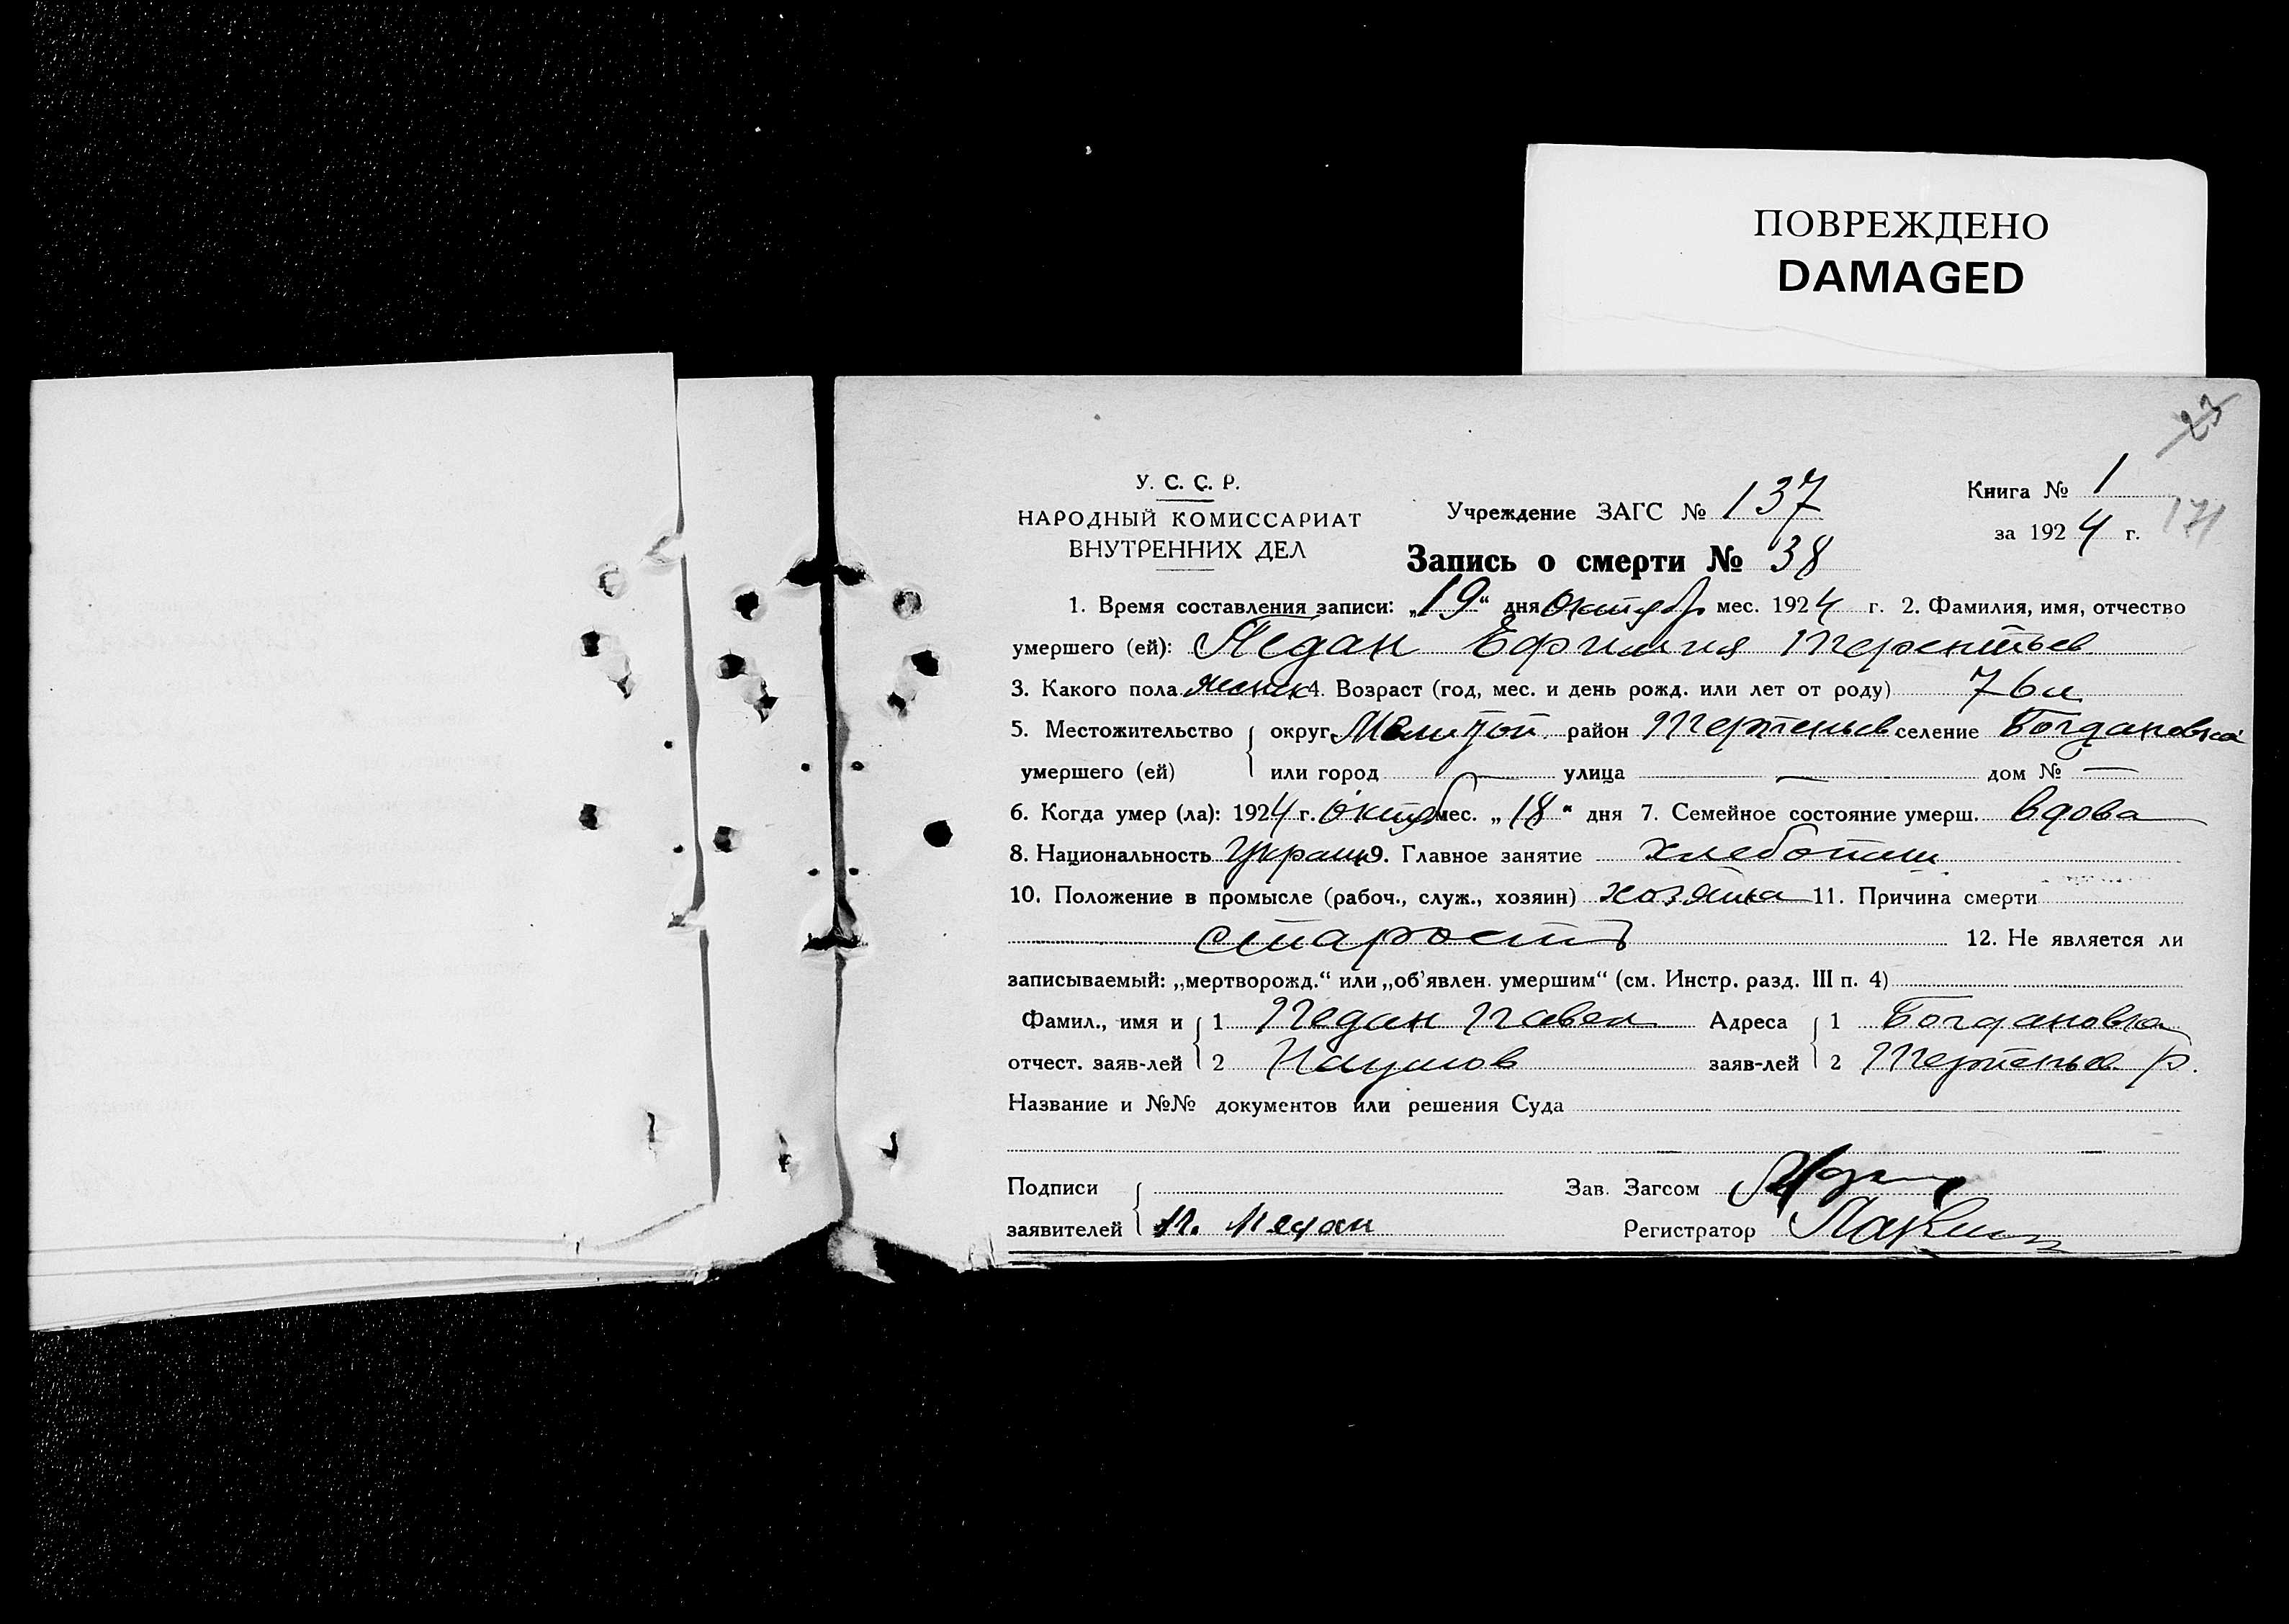 ПОВРЕЖДЕНО
DAMAGED
23
У. С. С. Р.
НАРОДНЫЙ КОМИССАРИАТ
ВНУТРЕННИХ ДЕЛ
Учреждение ЗАГС № 137
Книга № 1
за 1924 г.
171
Запись о смерти № 38
1. Время составления записи: „19“ дня Октябр мес. 1924 г. 2. Фамилия, имя, отчество
умершего (ей): Педан Ефимия Терентьев
3. Какого пола женск 4. Возраст (год, мес. и день рожд. или лет от роду) 76 л
5. Местожительство округ Мелитоп. район Терпеньев селение Богдановка
умершего (ей) или город — улица — дом № —
6. Когда умер (ла): 1924 г. Октяб мес. „18“ дня 7. Семейное состояние умерш. вдова
8. Национальность Украин 9. Главное занятие хлебопаш
10. Положение в промысле (рабоч., служ., хозяин) хозяйка 11. Причина смерти
старость 12. Не является ли
записываемый: „мертворожд.“ или „об'явлен. умершим“ (см. Инстр. разд. III п. 4)
Фамил., имя и 1 Педан Павел Адреса 1 Богдановка
отчест. заяв-лей 2 Наумов заяв-лей 2 Терпеньев. р.
Название и №№ документов или решения Суда
Подписи Зав. Загсом
заявителей П. Педан Регистратор